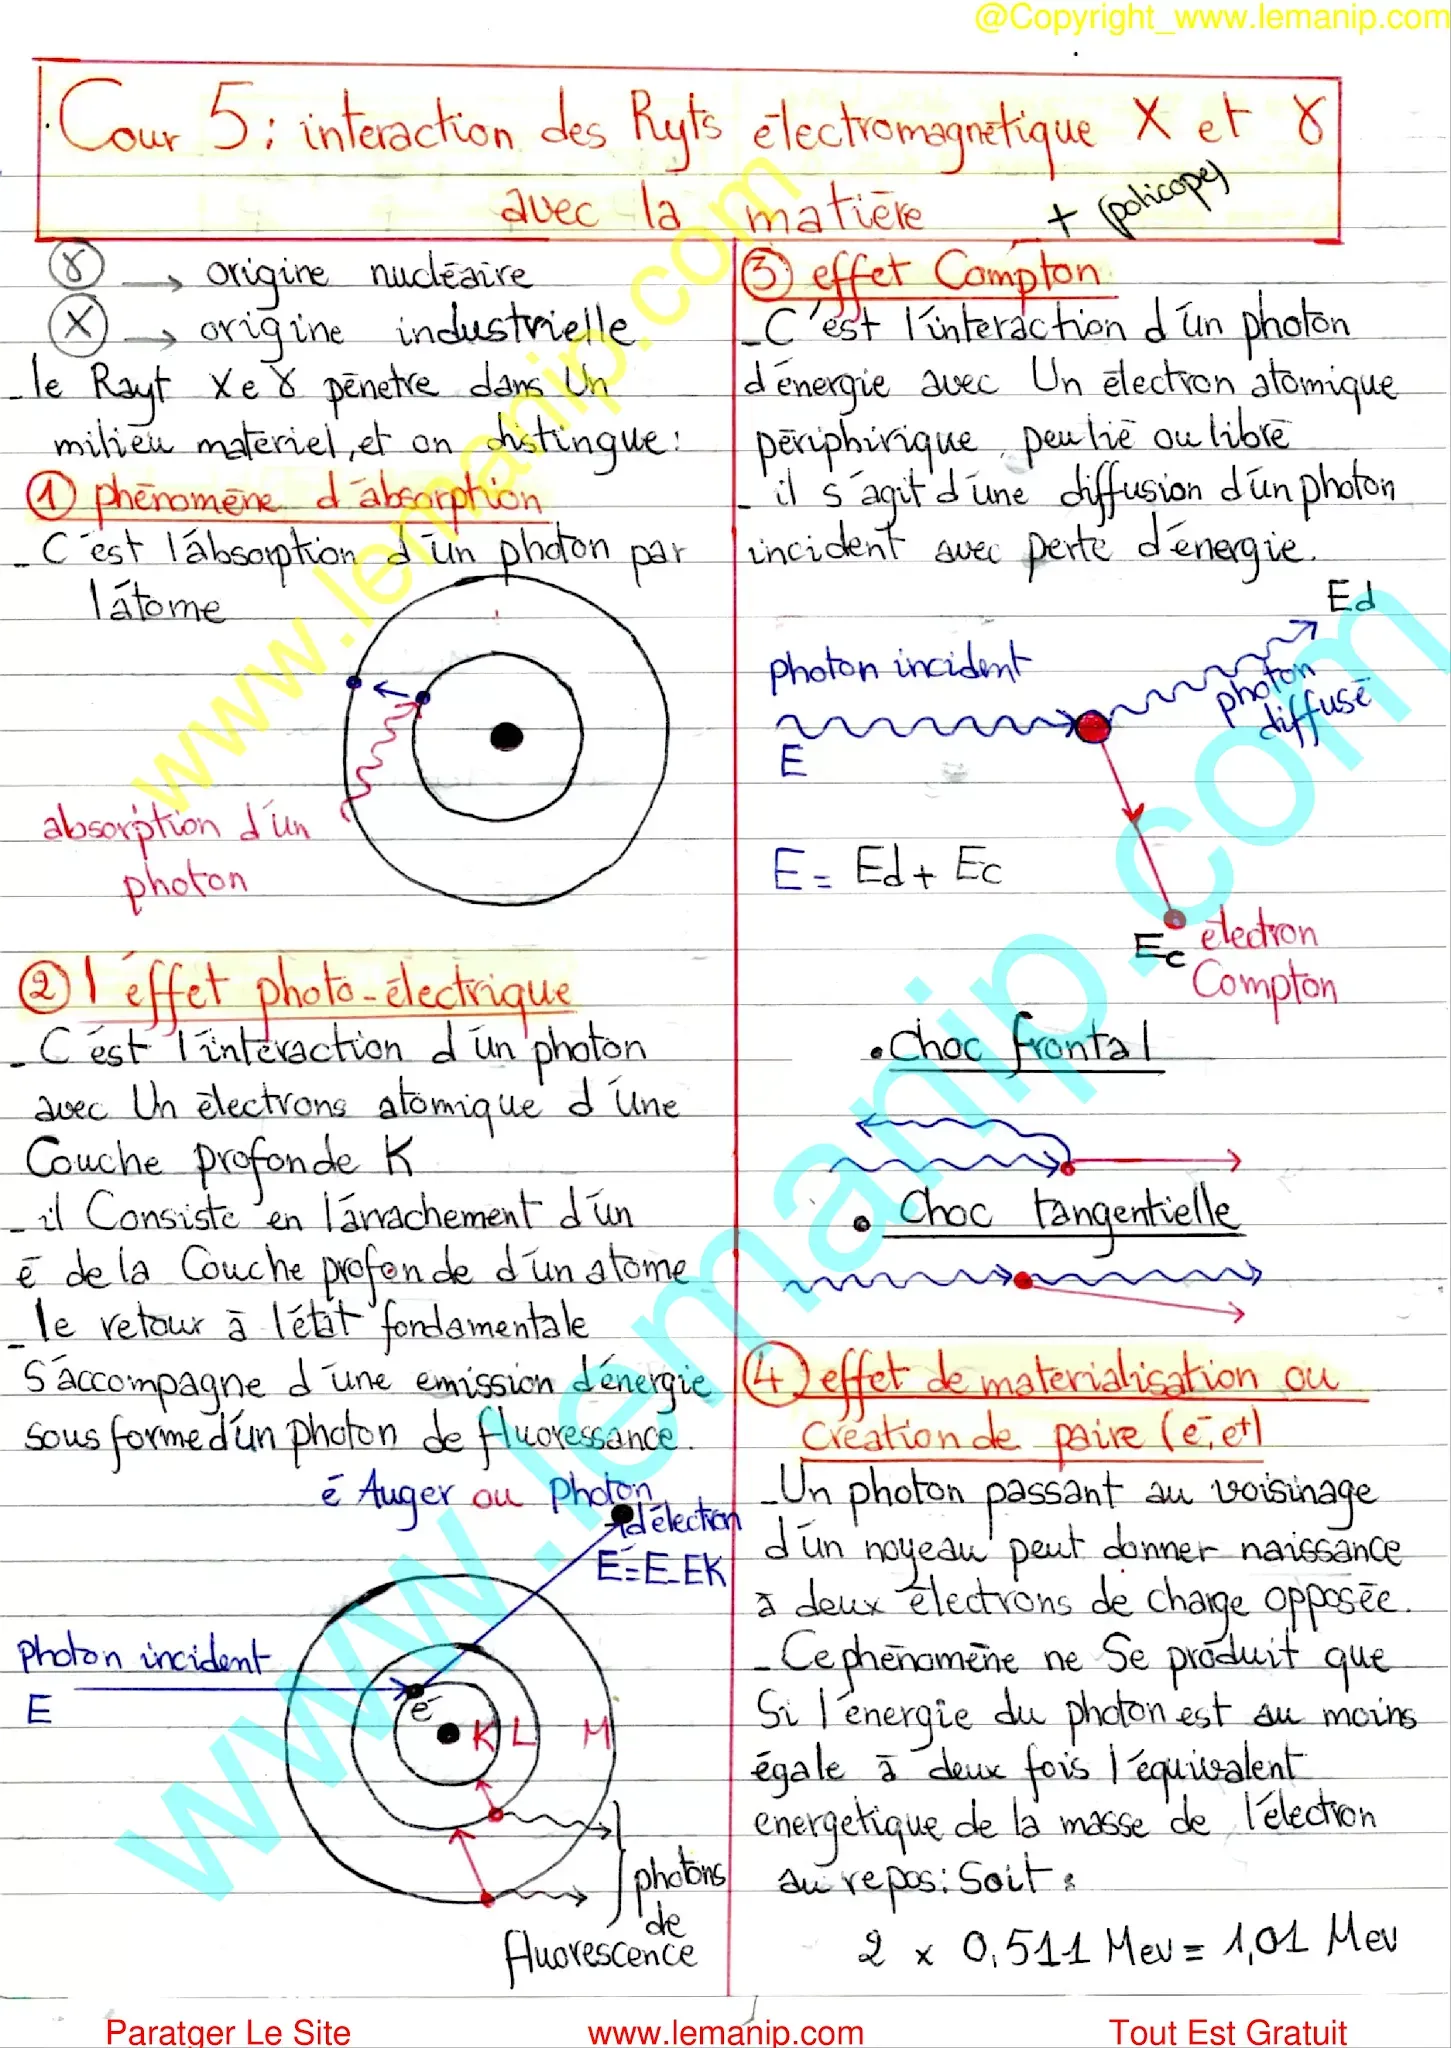 @Copyright_www.lemanip.com
Cour 5 : interaction des Ryts électromagnétique X et γ
avec la matière + (policope)
γ → origine nucléaire
X → origine industrielle
- le Rayt X e γ pénetre dans Un
milieu matériel, et on distingue :
① phénomène d'absorption
- C'est l'absorption d'un photon par
l'atome
absorption d'un
photon
② l'effet photo-électrique
- C'est l'interaction d'un photon
avec Un électrons atomique d'une
Couche profonde K
- il Consiste en l'arrachement d'un
ē de la Couche profonde d'un atome
- le retour à l'état fondamentale
S'accompagne d'une emission d'énergie
sous forme d'un photon de fluoressance.
ē Auger ou Photon
d'électron
E = E - EK
photon incident
E
e-
K L M
photons
de
fluorescence
③ effet Compton
- C'est l'interaction d'un photon
d'énergie avec Un électron atomique
périphirique, peu lié ou libre
- il s'agit d'une diffusion d'un photon
incident avec perte d'énergie.
Ed
photon incident
photon
diffusé
E
E = Ed + Ec
Ec électron
Compton
• Choc frontal
• Choc tangentielle
④ effet de materialisation ou
création de paire (e-, e+)
- Un photon passant au voisinage
d'un noyeau peut donner naissance
à deux électrons de charge opposée.
- Ce phénomène ne Se produit que
Si l'énergie du photon est au moins
égale à deux fois l'équivalent
energetique de la masse de l'électron
au repos : Soit :
2 x 0,511 Mev = 1,01 Mev
www.lemanip.com
www.lemanip.com
Paratger Le Site www.lemanip.com Tout Est Gratuit